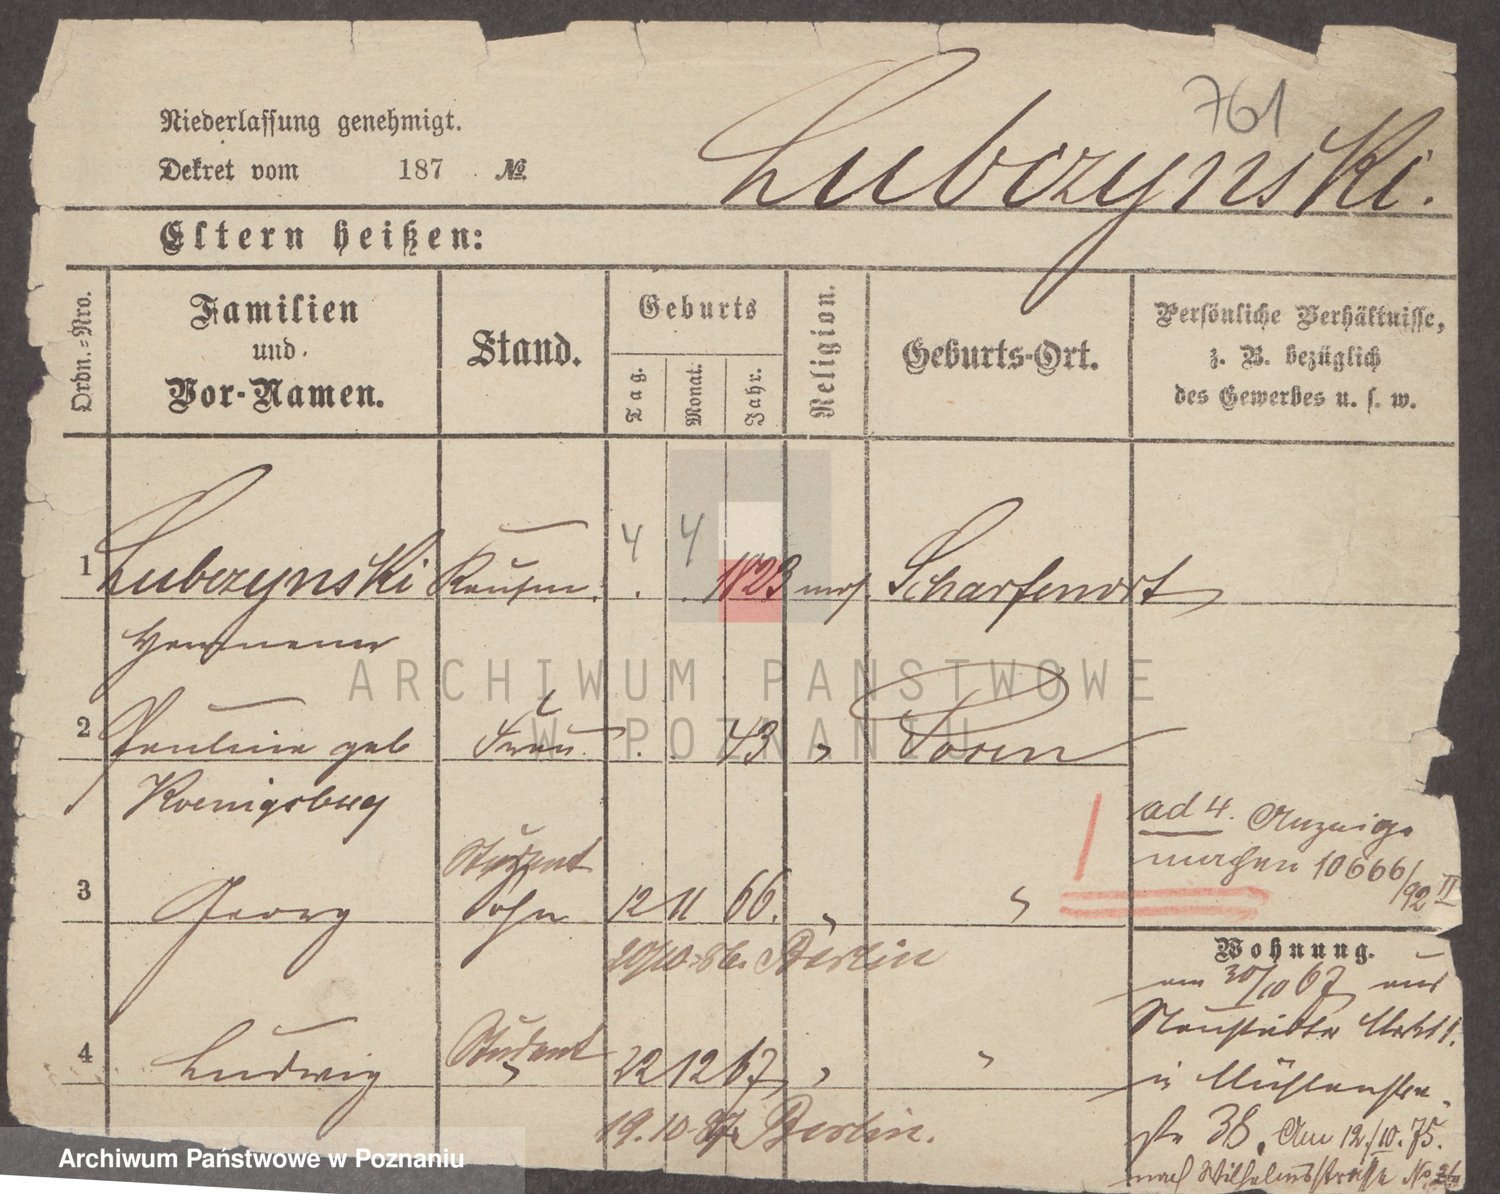 761
Lubczynski.
Niederlassung genehmigt.
Dekret vom 187 №
Eltern heißen:
Ordn.=Nro.
Familien
und
Vor-Namen.
Stand.
Geburts
Tag.
Monat.
Jahr.
Religion.
Geburts-Ort.
Persönliche Verhältnisse,
z. B. bezüglich
des Gewerbes u. s. w.
1 Lubczynski Kaufm. 4 4 1823 mos. Scharfenort
Hermann
2 Pauline geb Frau 43 "
Koenigsberg
ad 4. Anzeige
machen 10666/92 II
Student
3 Georg Sohn 12 11 66. " "
20/10.86. Berlin
Student
4 Ludwig " 22 12 67 " "
19.10. Berlin.
Wohnung.
am 30/10 67 aus
Neustädter Markt
in Mühlenstra
ße 38. Am 12./10. 75.
nach Wilhelmsstraße No.
ARCHIWUM PAŃSTWOWE
W POZNANIU
Archiwum Państwowe w Poznaniu